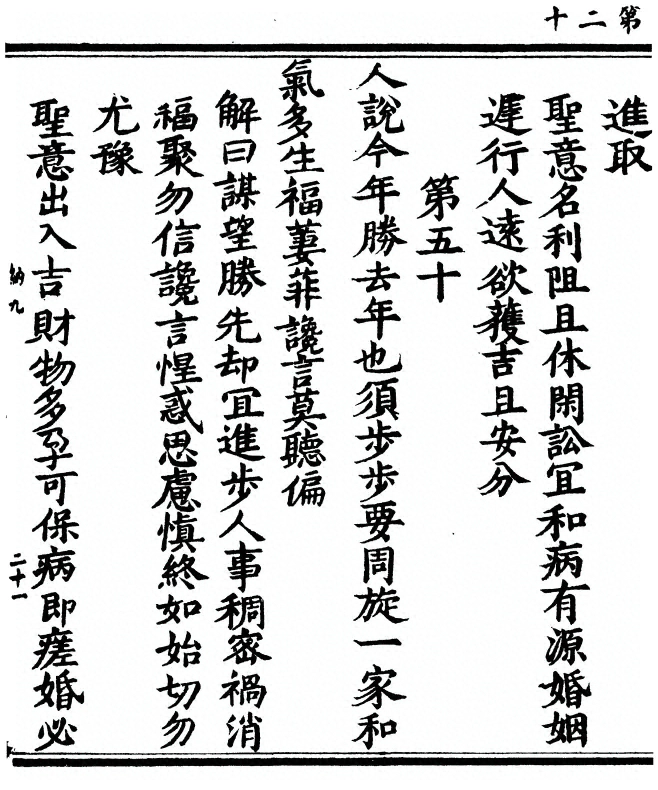 第二十
進取
聖意名利阻且休閑訟冝和病有源婚姻
遅行人遠欲獲吉且安分
第五十
人說今年勝去年也須步步要周旋一家和
氣多生福萋菲讒言莫聽偏
解曰謀望勝先却冝進步人事稠宻禍消
福聚勿信讒言惺惑思慮慎終如始切勿
尤豫
聖意出入吉財物多孕可保病即瘥婚必
納九
二十一